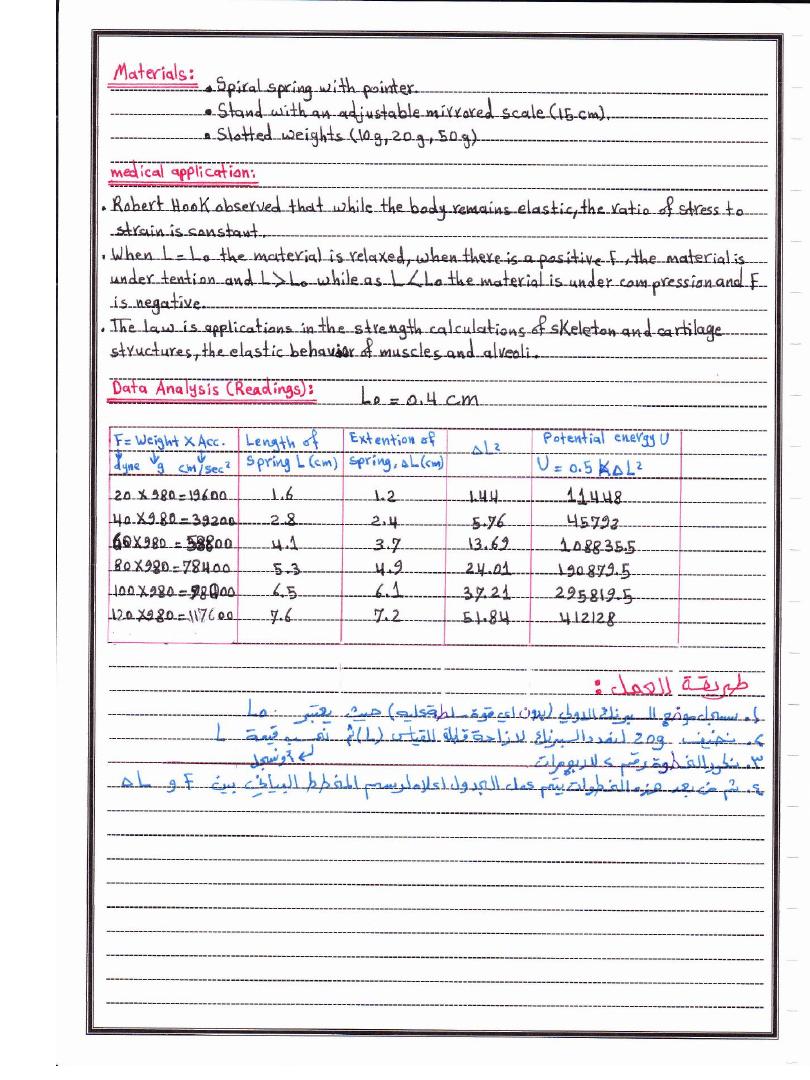 Materials:
• Spiral spring with pointer.
• Stand with an adjustable mirrored scale (15 cm).
• Slotted weights (10g, 20g, 50g)
medical application:
• Robert Hook observed that while the body remains elastic, the ratio of stress to
strain is constant.
• When L = L₀ the material is relaxed, when there is a positive F, the material is
under tention and L > L₀ while as L < L₀ the material is under compression and F
is negative.
• The law is applications in the strength calculations of skeleton and cartilage
structures, the elastic behavior of muscles and alveoli.
Data Analysis (Readings): L₀ = 0.4 cm
F = Weight X Acc. Length of Extention of ΔL² Potential energy U
dyne g cm/sec² spring L (cm) spring, ΔL (cm) U = 0.5 K ΔL²
20 X 980 = 19600 1.6 1.2 1.44 11448
40 X 980 = 39200 2.8 2.4 5.76 45792
60 X 980 = 58800 4.1 3.7 13.69 108835.5
80 X 980 = 78400 5.3 4.9 24.01 190879.5
100 X 980 = 98000 6.5 6.1 37.21 295819.5
120 X 980 = 117600 7.6 7.2 51.84 412128
طريقة العمل:
١. نسجل موضع السبرنك الاولي (بدون اي قوة مسلطة عليه) حيث يعتبر L₀
٢. نضيف 20g القياس (L) ثم نحسب قيمة L
٣. الخطوة رقم ٢ ونسجل
٤. ثم من بعد هذه الخطوات يتم عمل الجدول اعلاه لرسم المخطط البياني بين F و ΔL